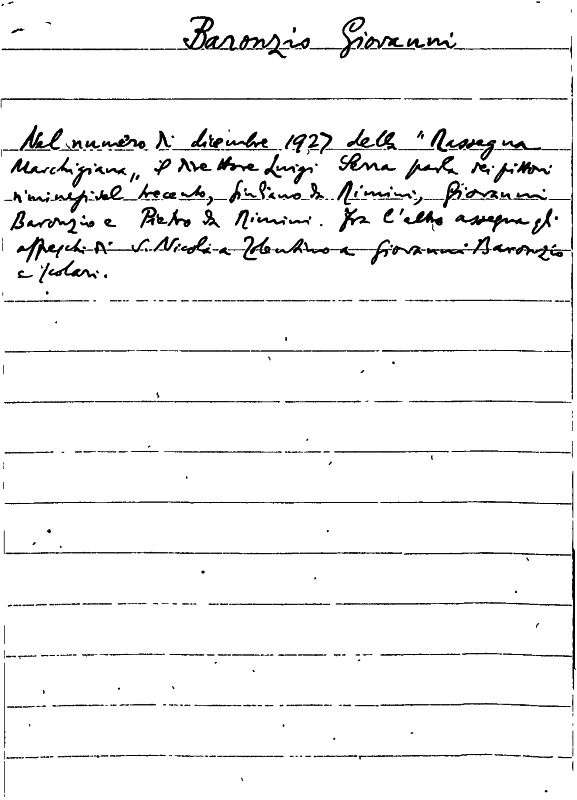 Baronzio Giovanni
Nel numero di dicembre 1927 della "Rassegna
Marchigiana" il direttore Luigi Serra parla dei pittori
riminesi del trecento, Giuliano da Rimini, Giovanni
Baronzio e Pietro da Rimini. Fra l'altro assegna gli
affreschi di S. Nicola a Tolentino a Giovanni Baronzio
e scolari.